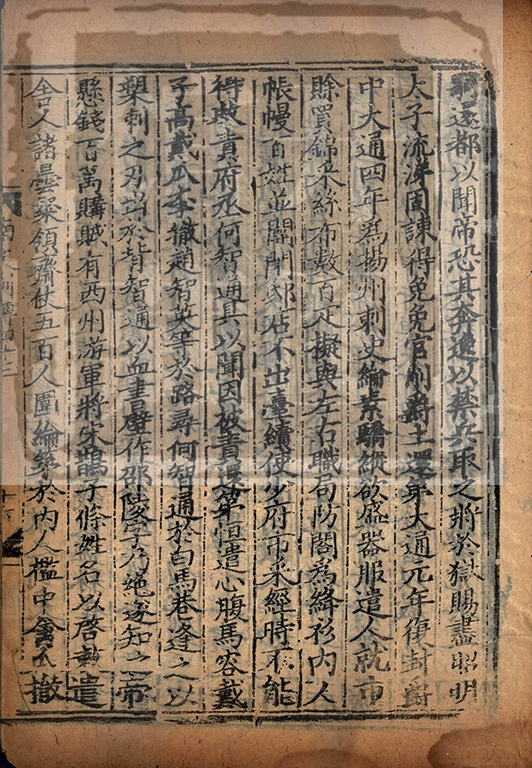 遂都以聞帝恐其奔逸以禁兵取之將於獄賜盡昭明
太子流涕固諫得免免官削爵土還第大通元年復封爵
中大通四年為揚州刺史綸素驕縱欲盛器服遣人就市
賒買錦采絲布數百疋擬與左右職局防閤為絳衫內人
帳幔百姓並關閉邸店不出臺續使少府市采經時不能
得敕責府丞何智通具以聞因被責還第恒遣心腹馬容戴
子高戴瓜李撤趙智英等於路尋何智通於白馬巷逢之以
槊刺之刃出於背智通以血書壁作邵陵字乃絕遂知之帝
懸錢百萬購賊有西州游軍將宋鵲子條姓名以啓敕遣
舍人諸曇粲領齋仗五百人圍綸第於內人檻中禽瓜撤